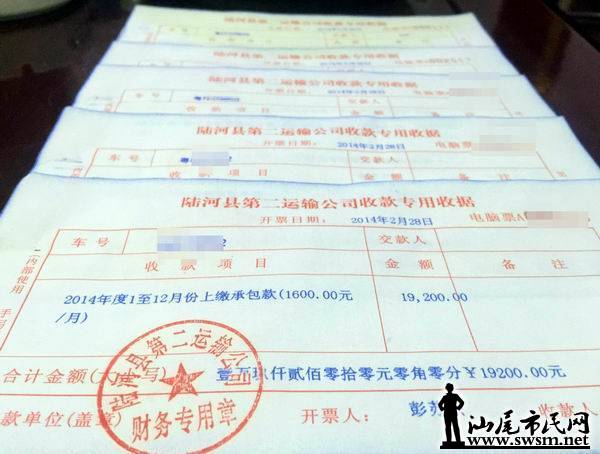 陆河县第二运输公司收款专用收据
陆河县第二运输公司收款专用收据
陆河县第二运输公司收款专用收据
陆河县第二运输公司收款专用收据
开票日期： 2014年2月28日 电脑票
车号 粤 交款人
收款项目 金额 备注
陆河县第二运输公司收款专用收据
开票日期： 2014年2月28日 电脑票A
车号 2 交款人
收款项目 金额 备注
2014年度1至12月份上缴承包款(1600.00元 19,200.00
/月)
合计金额(大写) 壹万玖仟贰佰零拾零元零角零分￥19200.00元
款单位(盖章) 开票人： 彭 收款人
(内部使用 手写
陆河县第二运输公司
财务专用章
汕尾市民网
www.swsm.net